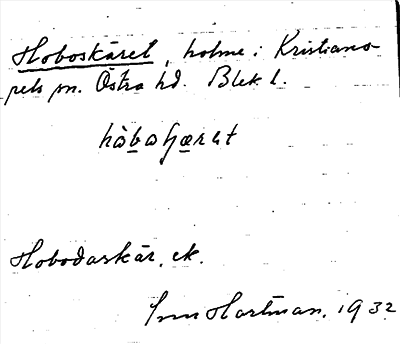 Hoboskäret, holme i Kristiano-
pels sn. Östra hd. Blek l.
Hobodaskär, ek.
Hartman. 1932